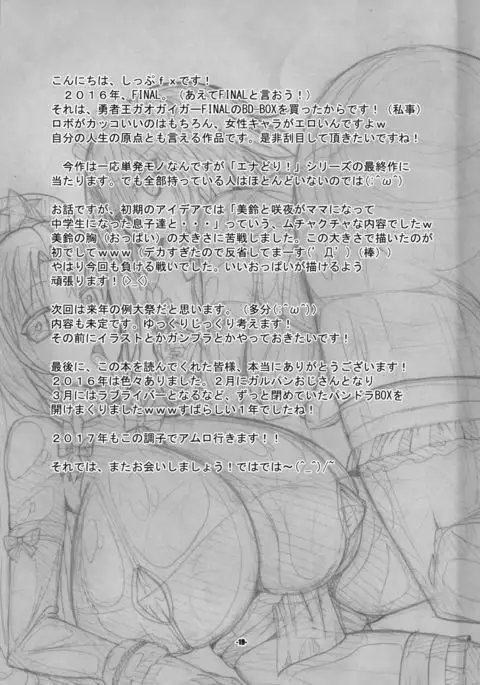 こんにちは、しっぷｆｘです！
２０１６年、FINAL。（あえてFINALと言おう！）
それは、勇者王ガオガイガーFINALのBD-BOXを買ったからです！（私事）
ロボがカッコいいのはもちろん、女性キャラがエロいんですよｗ
自分の人生の原点とも言える作品です。是非刮目して頂きたいですね！
今作は一応単発モノなんですが「エナどり！」シリーズの最終作に
当たります。でも全部持っている人はほとんどいないのでは(;^ω^)
お話ですが、初期のアイデアでは「美鈴と咲夜がママになって
中学生になった息子達と・・・」っていう、ムチャクチャな内容でしたｗ
美鈴の胸（おっぱい）の大きさに苦戦しました。この大きさで描いたのが
初でしてｗｗｗ（デカすぎたので反省してまーす(ﾟДﾟ)（棒））
やはり今回も負ける戦いでした。いいおっぱいが描けるよう
頑張ります！(>_<)
次回は来年の例大祭だと思います。（多分(;^ω^)）
内容も未定です。ゆっくりじっくり考えます！
その前にイラストとかガンプラとかやっておきたいです！
最後に、この本を読んでくれた皆様、本当にありがとうございます！
２０１６年は色々ありました。２月にガルパンおじさんとなり
３月にはラブライバーとなるなど、ずっと閉めていたパンドラBOXを
開けまくりましたｗｗｗすばらしい１年でしたね！
２０１７年もこの調子でアムロ行きます！！
それでは、またお会いしましょう！ではでは～(^_^)/~
-19-